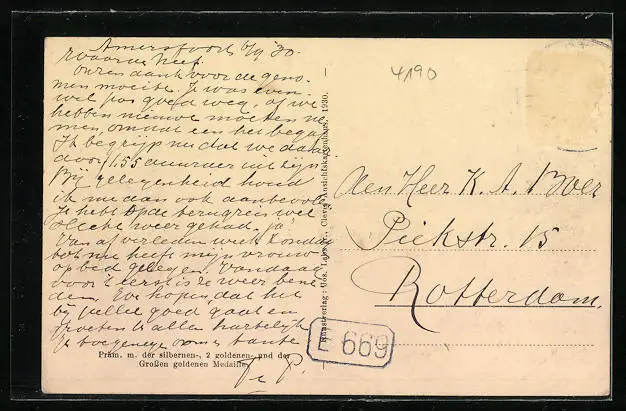 Amersfoort 6/9 30.
Waarde neef.
onzen dank voor de geno-
men moeite. Je was even
wel pas goed weg, of we
hebben nieuwe moeten ne
men, omdat een het begaf
Ik begrijp nu dat we daar
door 1.55 duurder uit zijn.
Bij gelegenheid houd
ik me dan ook aanbevolen
Je hebt op de terugreis wel
slecht weer gehad, ja
Van af verleden week Zondag
tot nu heeft mijn vrouw
op bed gelegen. Vandaag
voor 't eerst is ze weer bene
den. We hopen dat het
bij jullie goed gaat en
groeten U allen hartelijk
Je toegenegen oom & tante
P.
Präm. m. der silbernen-, 2 goldenen- und der
Großen goldenen Medaille
Kunstverlag: Jos. Cleve Ansichtskartenhaus. 1930.
4190
den Heer K. A. Boer
Piekstr. 15
Rotterdam.
E 669